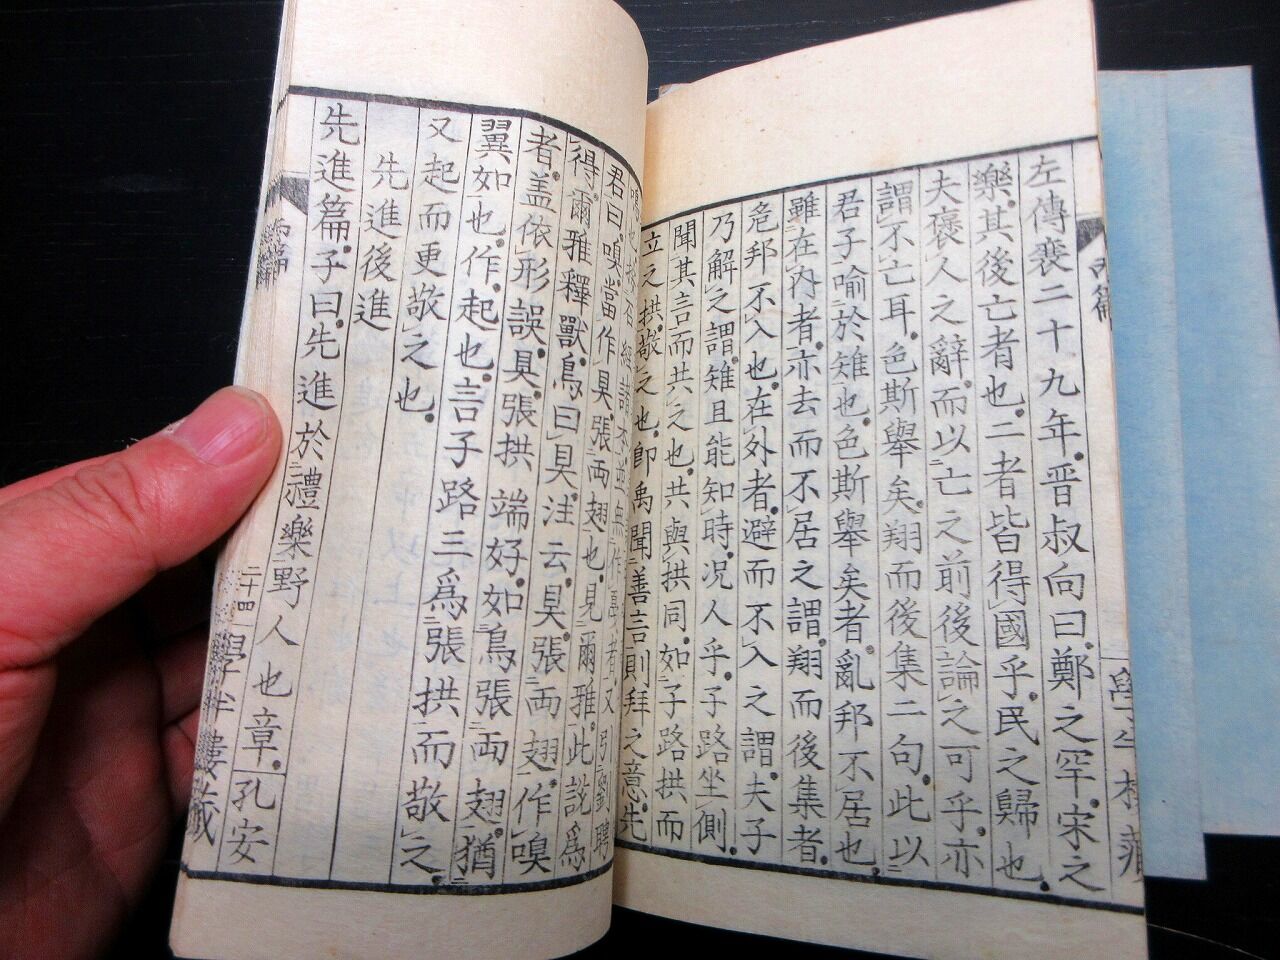 左傳襄二十九年。晋叔向曰。鄭之罕。宋之
樂。其後亡者也。二者皆得國乎。民之歸也。
夫褒人之辭。而以亡之前後論之可乎。亦
謂不亡耳。色斯舉矣。翔而後集二句。此以
君子喻於雉也。色斯舉矣者。亂邦不居也。
雖在内者。亦去而不居之謂。翔而後集者。
危邦不入也。在外者。避而不入之謂。夫子
乃解之謂。雉且能知時。况人乎。子路坐側。
聞其言而共之也。共與拱同。如子路拱而
立之拱。敬之也。卽禹聞善言則拜之意。先
君曰嗅。當作臭。張両翅也。見爾雅。此説爲
得。爾雅釋獸。鳥曰臭。注云。臭。張両翅。作嗅
者。盖依形誤。具。張拱端好。如鳥張両翅。猶
翼如也。作。起也。言子路三爲張拱而敬之。
又起而更敬之也。
先進後進
先進篇。子曰。先進於禮樂野人也章。孔安
二十四